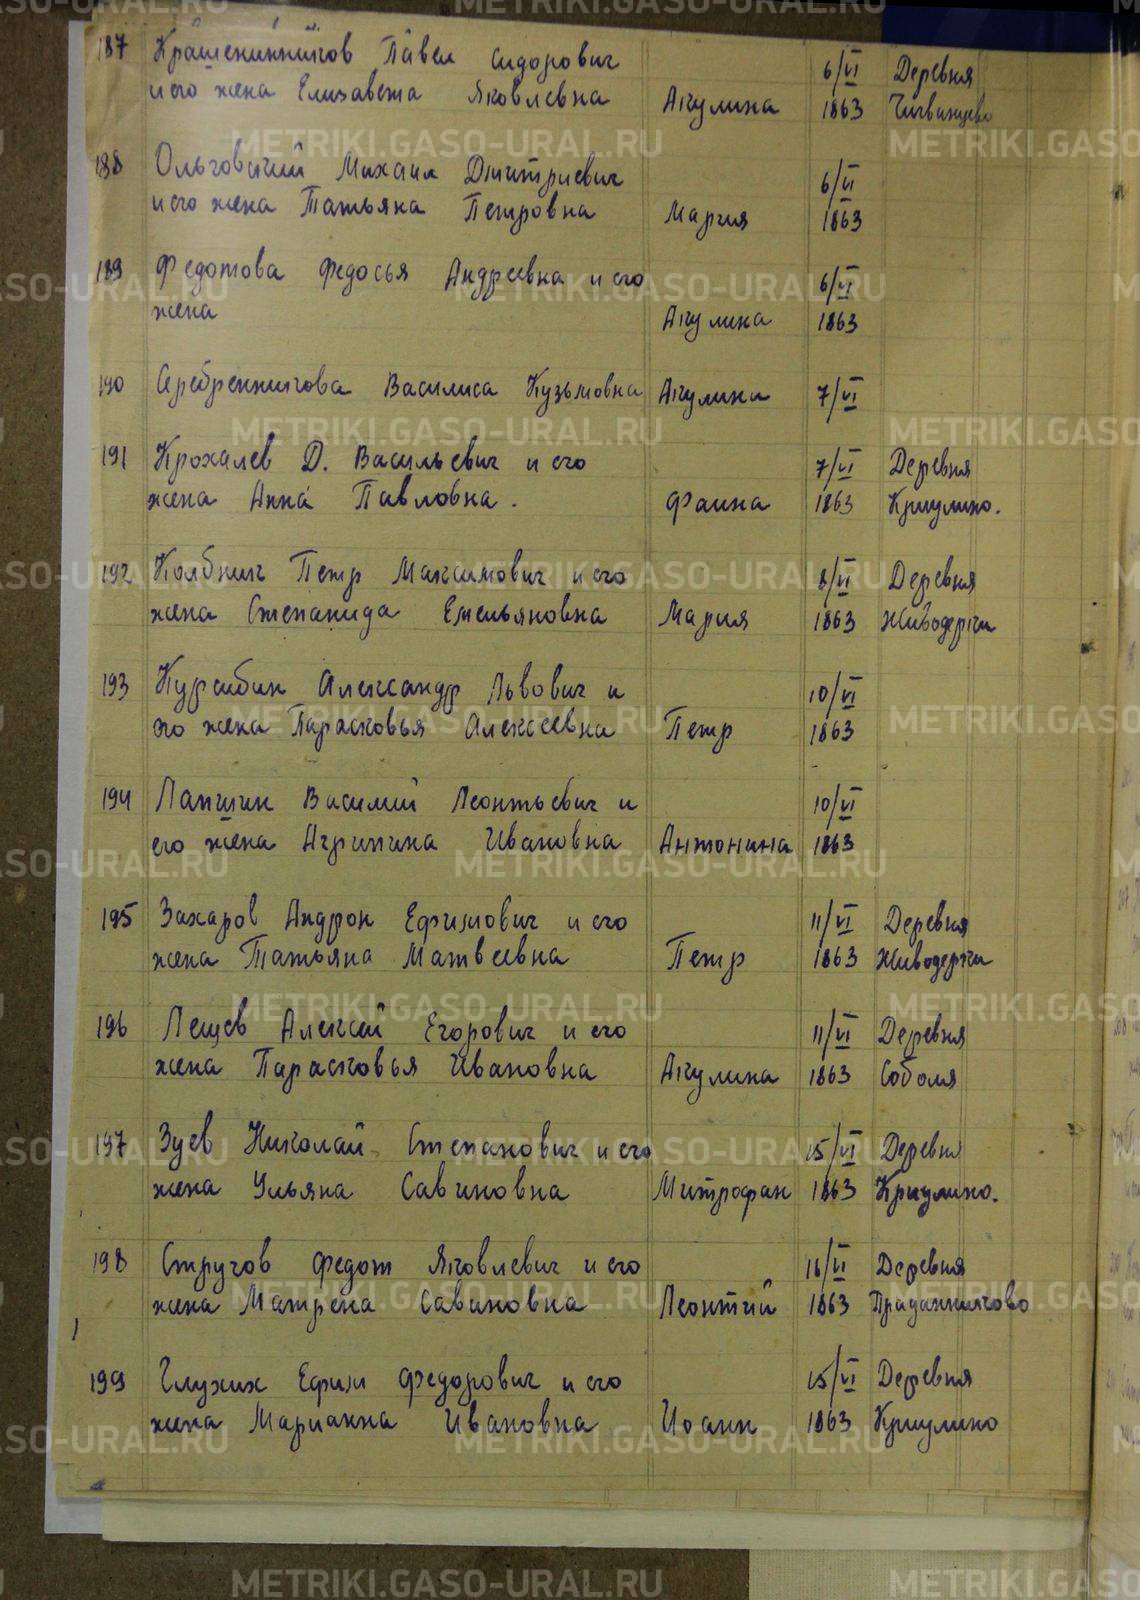 187 Крашенинников Павел Сидорович 6/VI Деревня
и его жена Елизавета Яковлевна Акулина 1863 Чигвинцево
188 Ольговский Михаил Дмитриевич 6/VI
и его жена Татьяна Петровна Мария 1863
189 Федотова Федосья Андреевна и его 6/VI
жена Акулина 1863
190 Серебренникова Василиса Кузьмовна Акулина 7/VI
191 Крохалев Д. Васильевич и его 7/VI Деревня
жена Анна Павловна. Фаина 1863 Криулино.
192 Петр Максимович и его 8/VI Деревня
жена Степанида Емельяновна Мария 1863 Живодерки
193 Александр Львович и 10/VI
его жена Парасковья Алексеевна Петр 1863
194 Лапшин Василий Леонтьевич и 10/VI
его жена Агрипина Ивановна Антонина 1863
195 Захаров Андрон Ефимович и его 11/VI Деревня
жена Татьяна Матвеевна Петр 1863 Живодерки
196 Лещев Алексей Егорович и его 11/VI Деревня
жена Парасковья Ивановна Акулина 1863 Соболя
197 Зуев Николай Степанович и его 15/VI Деревня
жена Ульяна Савиновна Митрофан 1863 Криулино.
198 Стругов Федот Яковлевич и его 16/VI Деревня
жена Матрена Савиновна Леонтий 1863
199 Глухих Ефим Федорович и его 15/VI Деревня
жена Марианна Ивановна Иоанн 1863 Криулино
METRIKI.GASO-URAL.RU